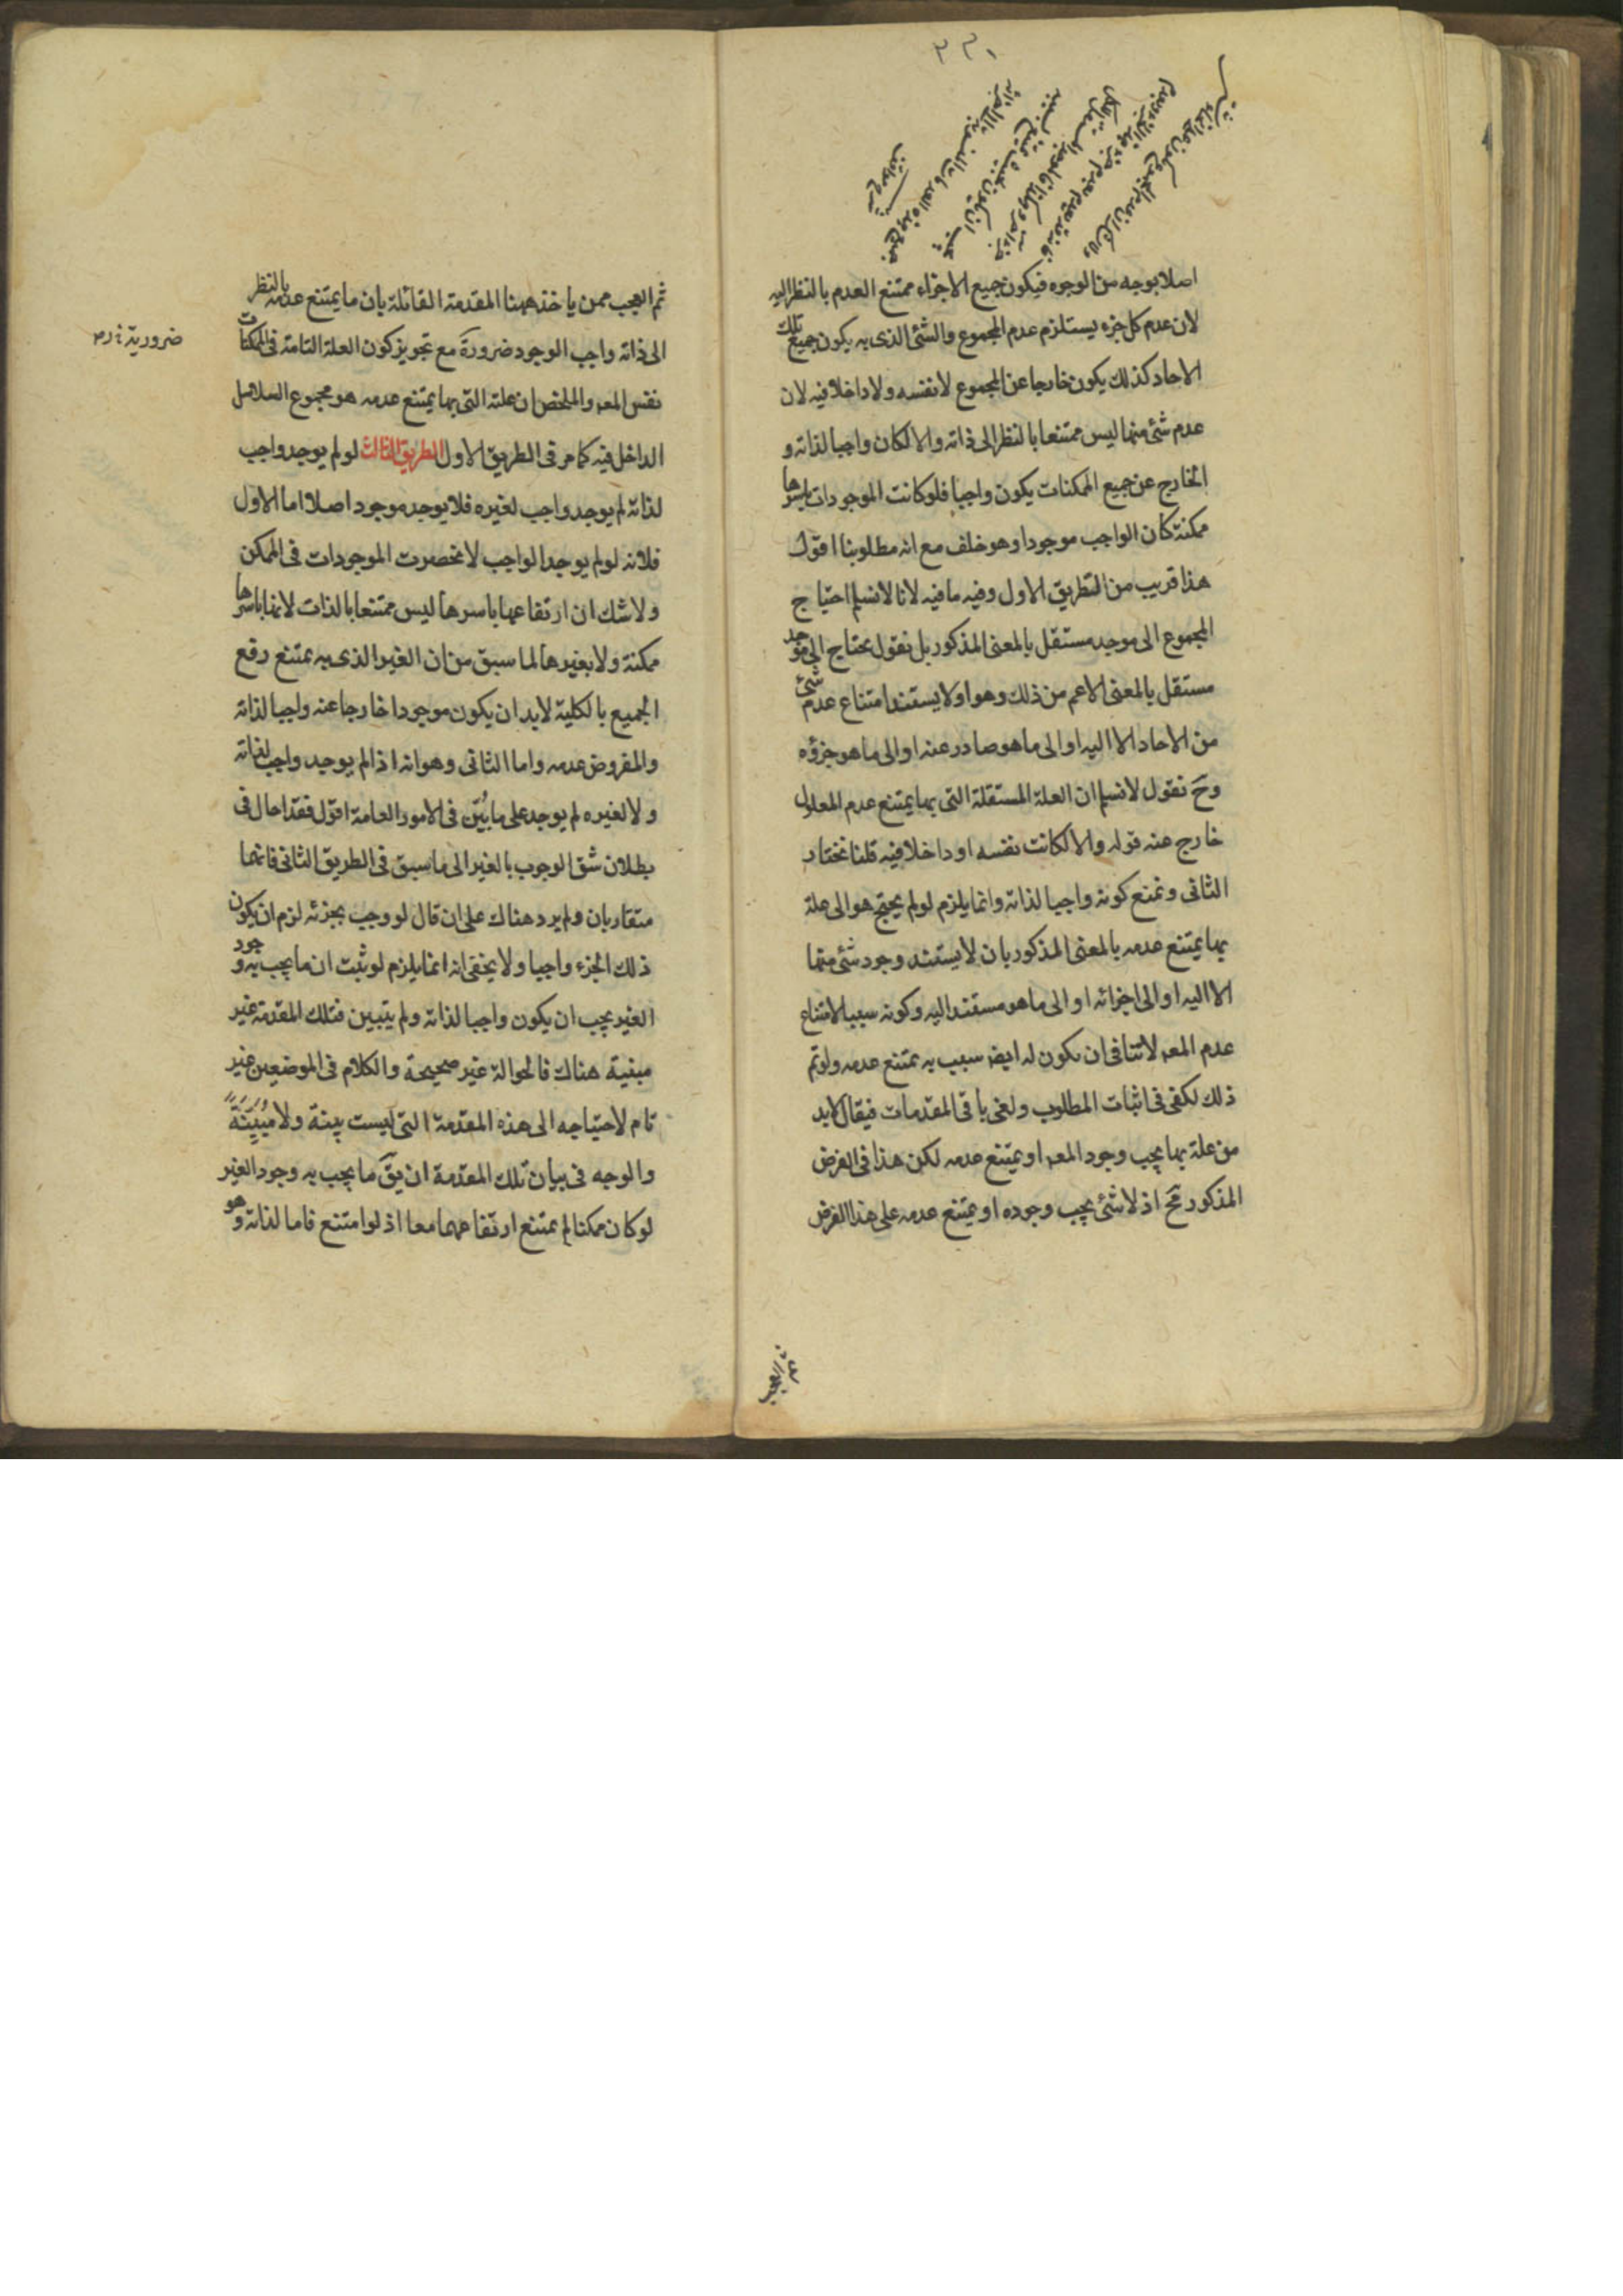 ٣٣١
اصلا بوجه من الوجوه فيكون جميع الاجزاء ممتنع العدم بالنظر اليه
لان عدم كل جزء يستلزم عدم المجموع والشئ الذى به يكون جميع تلك
الاحاد كذلك يكون خارجا عن المجموع لا نفسه ولا داخلا فيه لان
عدم شئ منها ليس ممتنعا بالنظر الى ذاته والا لكان واجبا لذاته و
الخارج عن جميع الممكنات يكون واجبا فلو كانت الموجودات باسرها
ممكنة كان الواجب موجودا وهو خلف مع انه مطلوبنا اقول
هذا قريب من الطريق الاول وفيه ما فيه لانا لا نسلم احتياج
المجموع الى موجد مستقل بالمعنى المذكور بل نقول يحتاج الى موجد
مستقل بالمعنى الاعم من ذلك وهو اولا يستند امتناع عدم شئ
من الاحاد الا اليه او الى ما هو صادر عنه او الى ما هو جزؤه
وح نقول لا نسلم ان العلة المستقلة التى بها يمتنع عدم المعلول
خارج عنه قوله والا لكانت نفسه او داخلا فيه قلنا نختار
الثانى ونمنع كونه واجبا لذاته وانما يلزم لو لم يحتج هو الى علة
بها يمتنع عدمه بالمعنى المذكور بان لا يستند وجود شئ منها
الا اليه او الى اجزائه او الى ما هو مستند اليه وكونه سببا لامتناع
عدم المعـ لا تنافى ان يكون له ايضا سبب به يمتنع عدمه ولو تم
ذلك لكفى فى اثبات المطلوب ولغى باقى المقدمات فيقال لابد
من علة بها يجب وجود المعـ او يمتنع عدمه لكن هذا فى الفرض
المذكور مح اذ لا شئ يجب وجوده او يمتنع عدمه على هذا الفرض
ثم العجب
ثم العجب ممن ياخذ ههنا المقدمة القائلة بان ما يمتنع عدمه بالنظر
الى ذاته واجب الوجود ضرورة مع تجويز كون العلة التامة فى الممكنات
ضرورية
نفس المعـ والملخص ان علته التى بها يمتنع عدمه هو مجموع السلاسل
الداخل فيه كما مر فى الطريق الاول الطريق الثالث لو لم يوجد واجب
لذاته لم يوجد واجب لغيره فلا يوجد موجود اصلا اما الاول
فلانه لو لم يوجد الواجب لانحصرت الموجودات فى الممكن
ولا شك ان ارتفاعها باسرها ليس ممتنعا بالذات لانها باسرها
ممكنة ولا بغيرها لما سبق من ان الغير الذى به يمتنع رفع
الجميع بالكلية لابد ان يكون موجودا خارجا عنه واجبا لذاته
والمفروض عدمه واما الثانى وهو انه اذا لم يوجد واجب لذاته
ولا لغيره لم يوجد على ما بُيّن فى الامور العامة اقول فقد احال فى
بطلان شق الوجوب بالغير الى ما سبق فى الطريق الثانى فانهما
متقاربان ولم يرد هناك على ان قال لو وجب بجزئه لزم ان يكون
ذلك الجزء واجبا ولا يخفى انه انما يلزم لو ثبت ان ما يجب به وجود
الغير يجب ان يكون واجبا لذاته ولم يتبين فتلك المقدمة غير
مبنية هناك فالحوالة غير صحيحة والكلام فى الموضعين غير
تام لاحتياجه الى هذه المقدمة التى ليست بينة ولا مُبَيَّنَةً
والوجه فى بيان تلك المقدمة ان يق ما يجب به وجود الغير
لو كان ممكنا لم يمتنع ارتفاعهما معا اذ لو امتنع فاما لذاته وهو